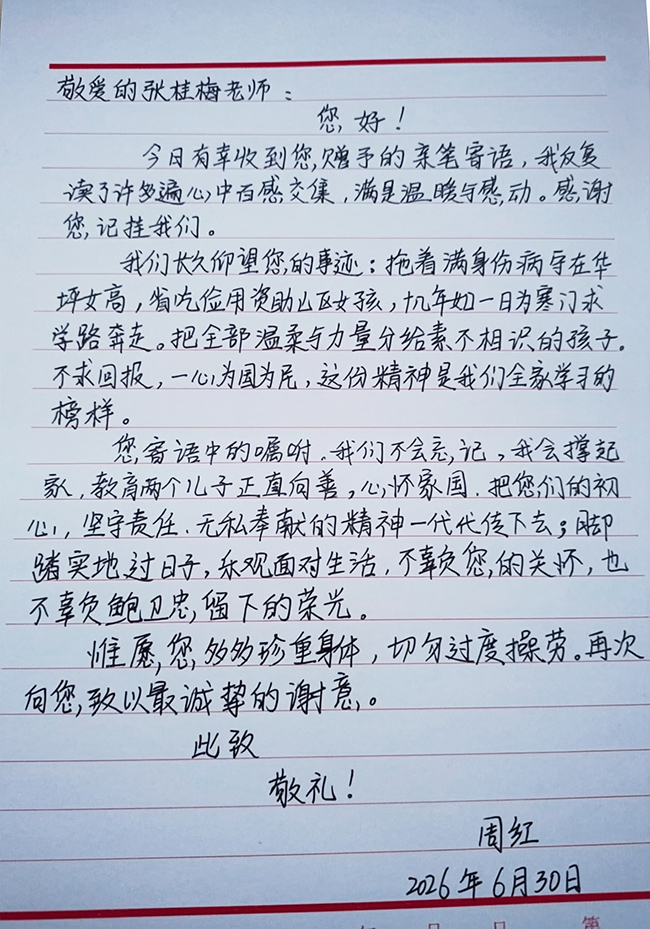 敬爱的张桂梅老师：
您好！
今日有幸收到您赠予的亲笔寄语，我反复
读了许多遍心中百感交集，满是温暖与感动。感谢
您记挂我们。
我们长久仰望您的事迹：拖着满身伤病守在华
坪女高，省吃俭用资助山区女孩，十几年如一日为寒门求
学路奔走。把全部温柔与力量分给素不相识的孩子。
不求回报，一心为国为民，这份精神是我们全家学习的
榜样。
您寄语中的嘱咐．我们不会忘记，我会撑起
家，教育两个儿子正直向善，心怀家国．把您们的初
心，坚守责任．无私奉献的精神一代代传下去；脚
踏实地过日子，乐观面对生活，不辜负您的关怀，也
不辜负鲍卫忠留下的荣光。
惟愿您多多珍重身体，切勿过度操劳。再次
向您致以最诚挚的谢意。
此致
敬礼！
周红
2026年6月30日